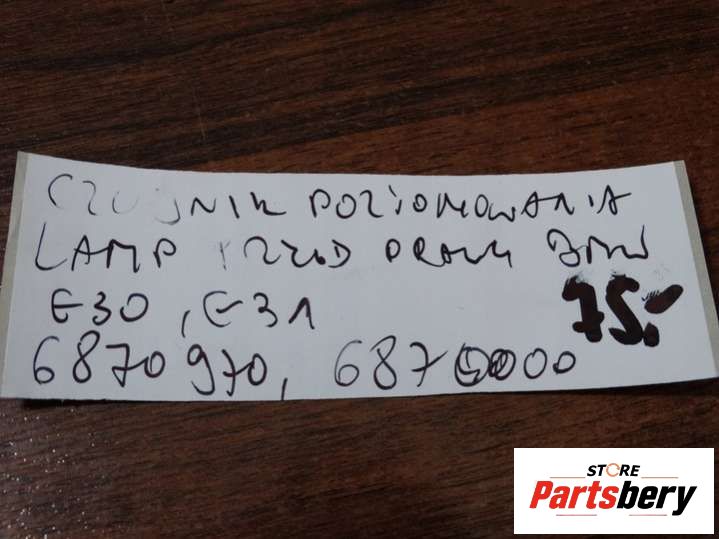 CZUJNIK POZIOMOWANIA
LAMP PRZÓD PRAWY BMW
G30, G31
75,-
6870970, 687
STORE
Partsbery